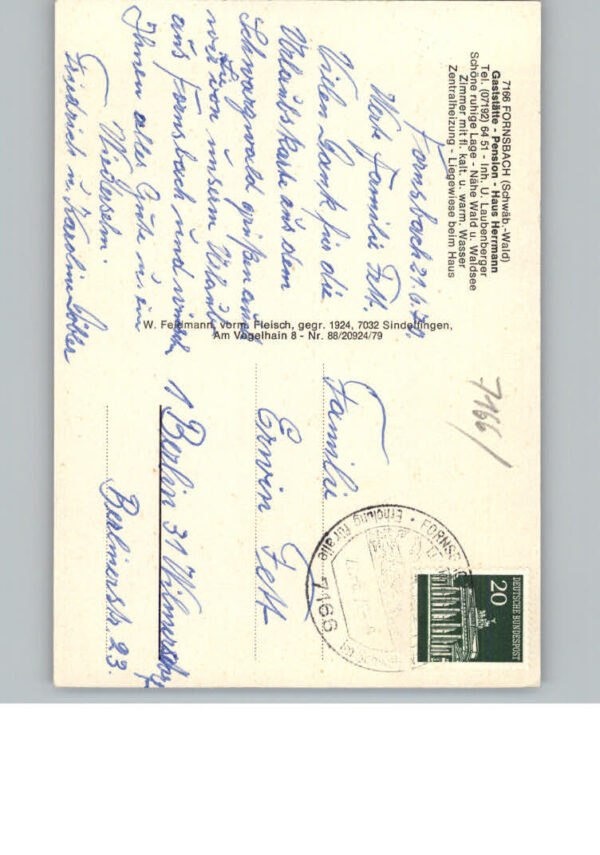 7166 FORNSBACH (Schwäb.-Wald)
Gaststätte - Pension - Haus Herrmann
Tel. (07192) 64 51 - Inh. U. Laubenberger
Schöne ruhige Lage - Nähe Wald u. Waldsee
Zimmer mit fl. kalt. u. warm. Wasser
Zentralheizung - Liegewiese beim Haus
Fornsbach 21.6.79.
Werte Familie Fett.
Vielen Dank für die
Urlaubskarte aus dem
Schwarzwald grüßen auch
wir von unserm Urlaub
aus Fornsbach und wünsche
Ihnen alles Gute u. ein
Wiedersehn
Friedrich u. Karlin
W. Feldmann, vorm. Fleisch, gegr. 1924, 7032 Sindelfingen,
Am Vogelhain 8 - Nr. 88/20924/79
7166/
Familie
Erwin Fett
1 Berlin 31 Wilmersdf
Berlinerstr. 23.
DEUTSCHE BUNDESPOST
20
FORNSB
Erholung für alle
7166